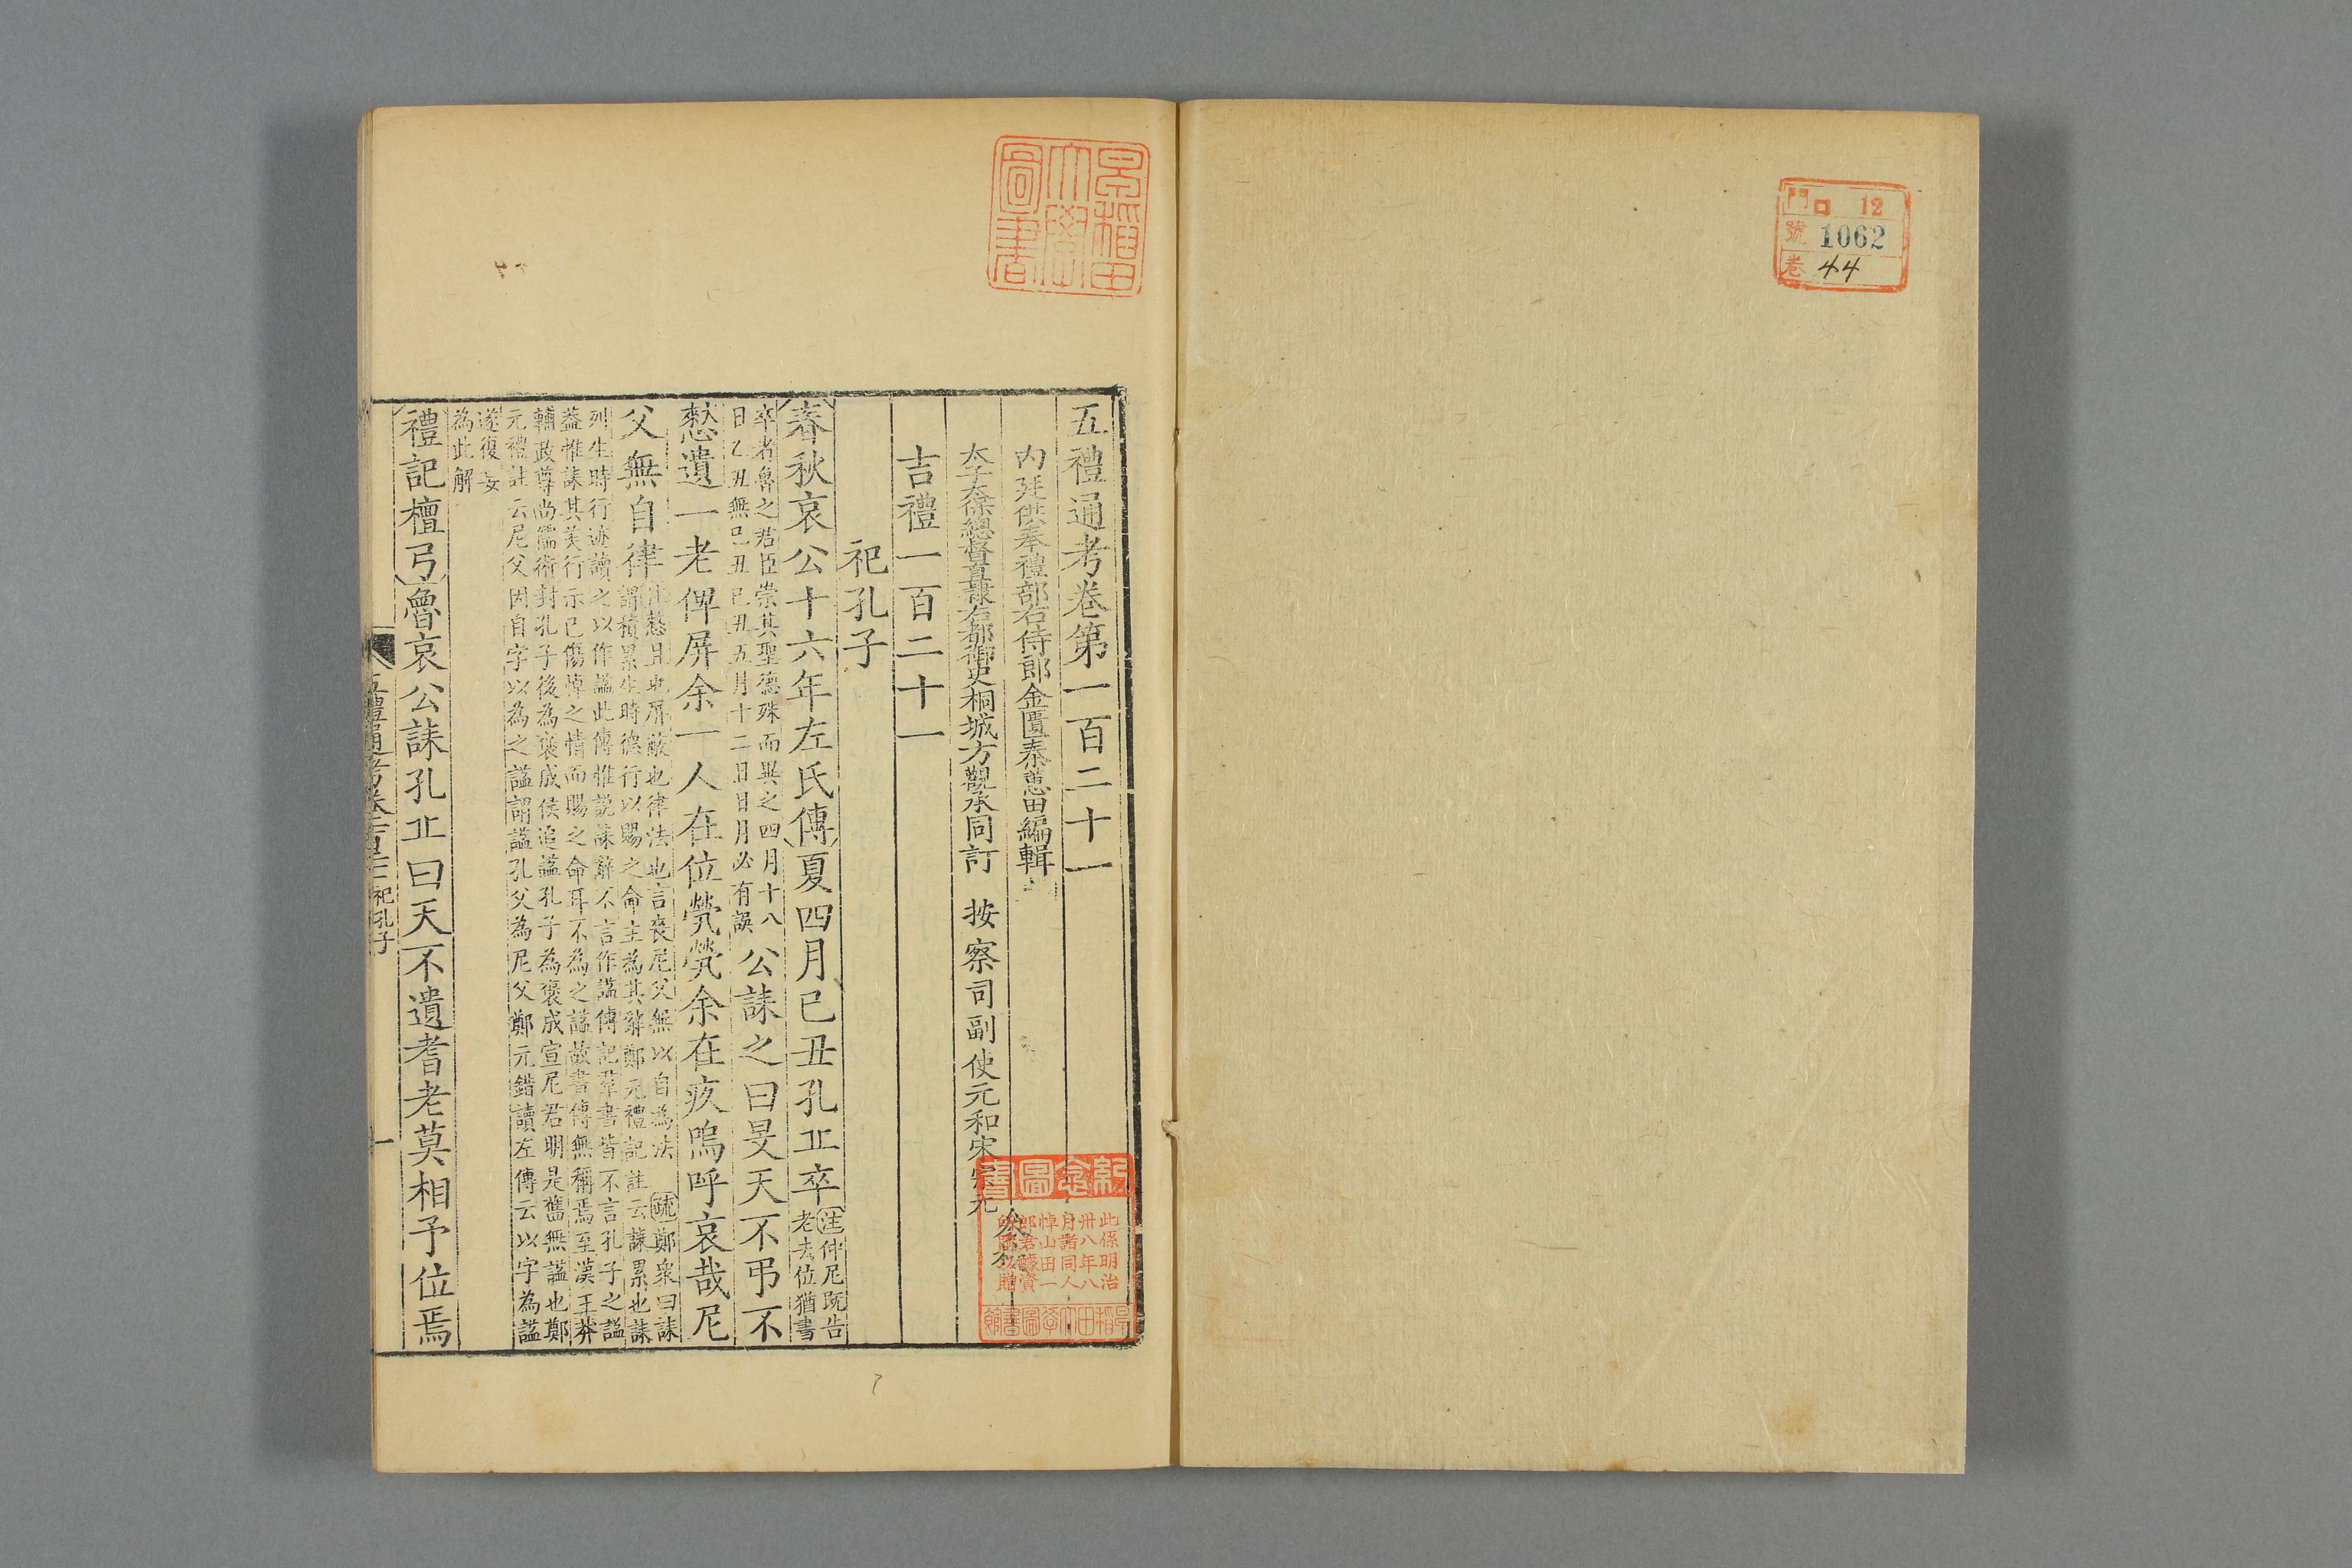 門 ロ 12
號 1062
卷 44
早稻田大學圖書
五禮通考卷第一百二十一
內廷供奉禮部右侍郎金匱秦蕙田編輯
太子太保總督直隸右都御史桐城方觀承同訂 按察司副使元和宋宗元
吉禮一百二十一
祀孔子
春秋哀公十六年左氏傳夏四月己丑孔丘卒注仲尼既告老去位猶書
卒者魯之君臣崇其聖德殊而異之四月十八日乙丑無己丑己丑五月十二日日月必有誤公誄之曰旻天不弔不
憖遺一老俾屏余一人在位煢煢余在疚嗚呼哀哉尼
父無自律注憖且也屏蔽也律法也言喪尼父無以自為法 疏鄭眾曰誄謂積累生時德行以賜之命主為其辭鄭元禮記註云誄累也誄
列生時行迹讀之以作謚此傳惟說誄辭不言作謚傳記羣書皆不言孔子之謚
蓋惟誄其美行示己傷悼之情而賜之命耳不為之謚故書傳無稱焉至漢王莽
輔政尊尚儒術封孔子後為褒成侯追謚孔子為褒成宣尼君明是舊無謚也鄭
元禮註云尼父因自字以為之謚謂謚孔父為尼父鄭元錯讀左傳云以字為謚
遂復妄
為此解
禮記檀弓魯哀公誄孔丘曰天不遺耆老莫相予位焉
五禮通考卷一百二十一 祀孔子
一
紀念圖書
此係明治
卅八年八
月諸同人
悼山田一
郎君醵資
早稻田大學圖書館